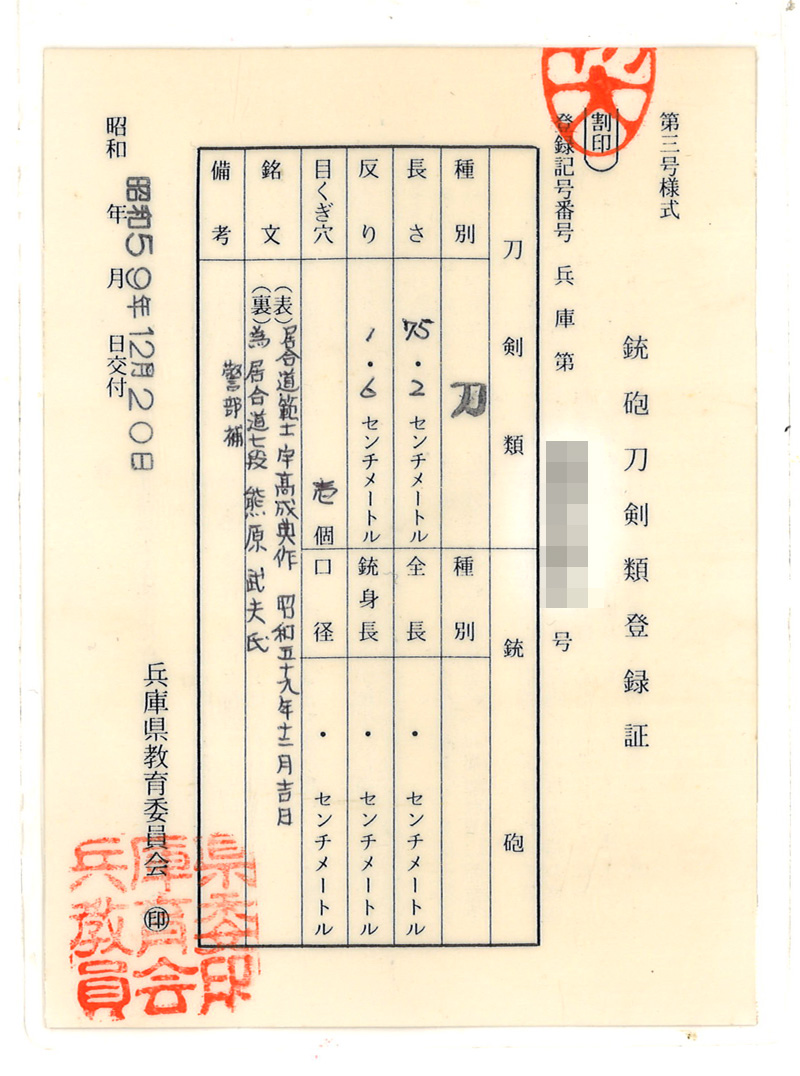 第三号様式
銃砲刀剣類登録証
割印
登録記号番号 兵庫第 号
刀剣類 銃砲
種別 刀 種別
長さ 75・2センチメートル 全長 ・センチメートル
反り 1・6センチメートル 銃身長 ・センチメートル
目くぎ穴 壱個 口径 ・センチメートル
銘文 (表)居合道範士宇髙成典作 昭和五十九年十二月吉日
(裏)為居合道七段熊原武夫氏
警部補
備考
昭和 年 月 日交付
昭和59年12月20日
兵庫県教育委員会 印
兵庫県教育委員会印